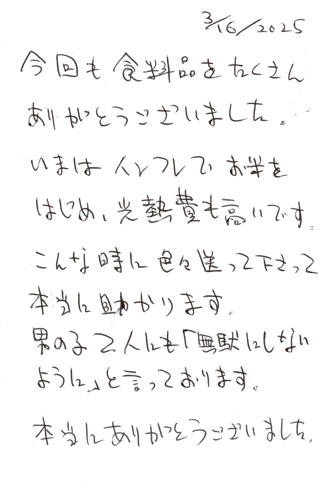 3/16/2025
今回も食料品をたくさん
ありがとうございました。
いまはインフレでお米を
はじめ、光熱費も高いです。
こんな時に色々送って下さって
本当に助かります。
男の子2人にも「無駄にしない
ように」と言っております。
本当にありがとうございました。